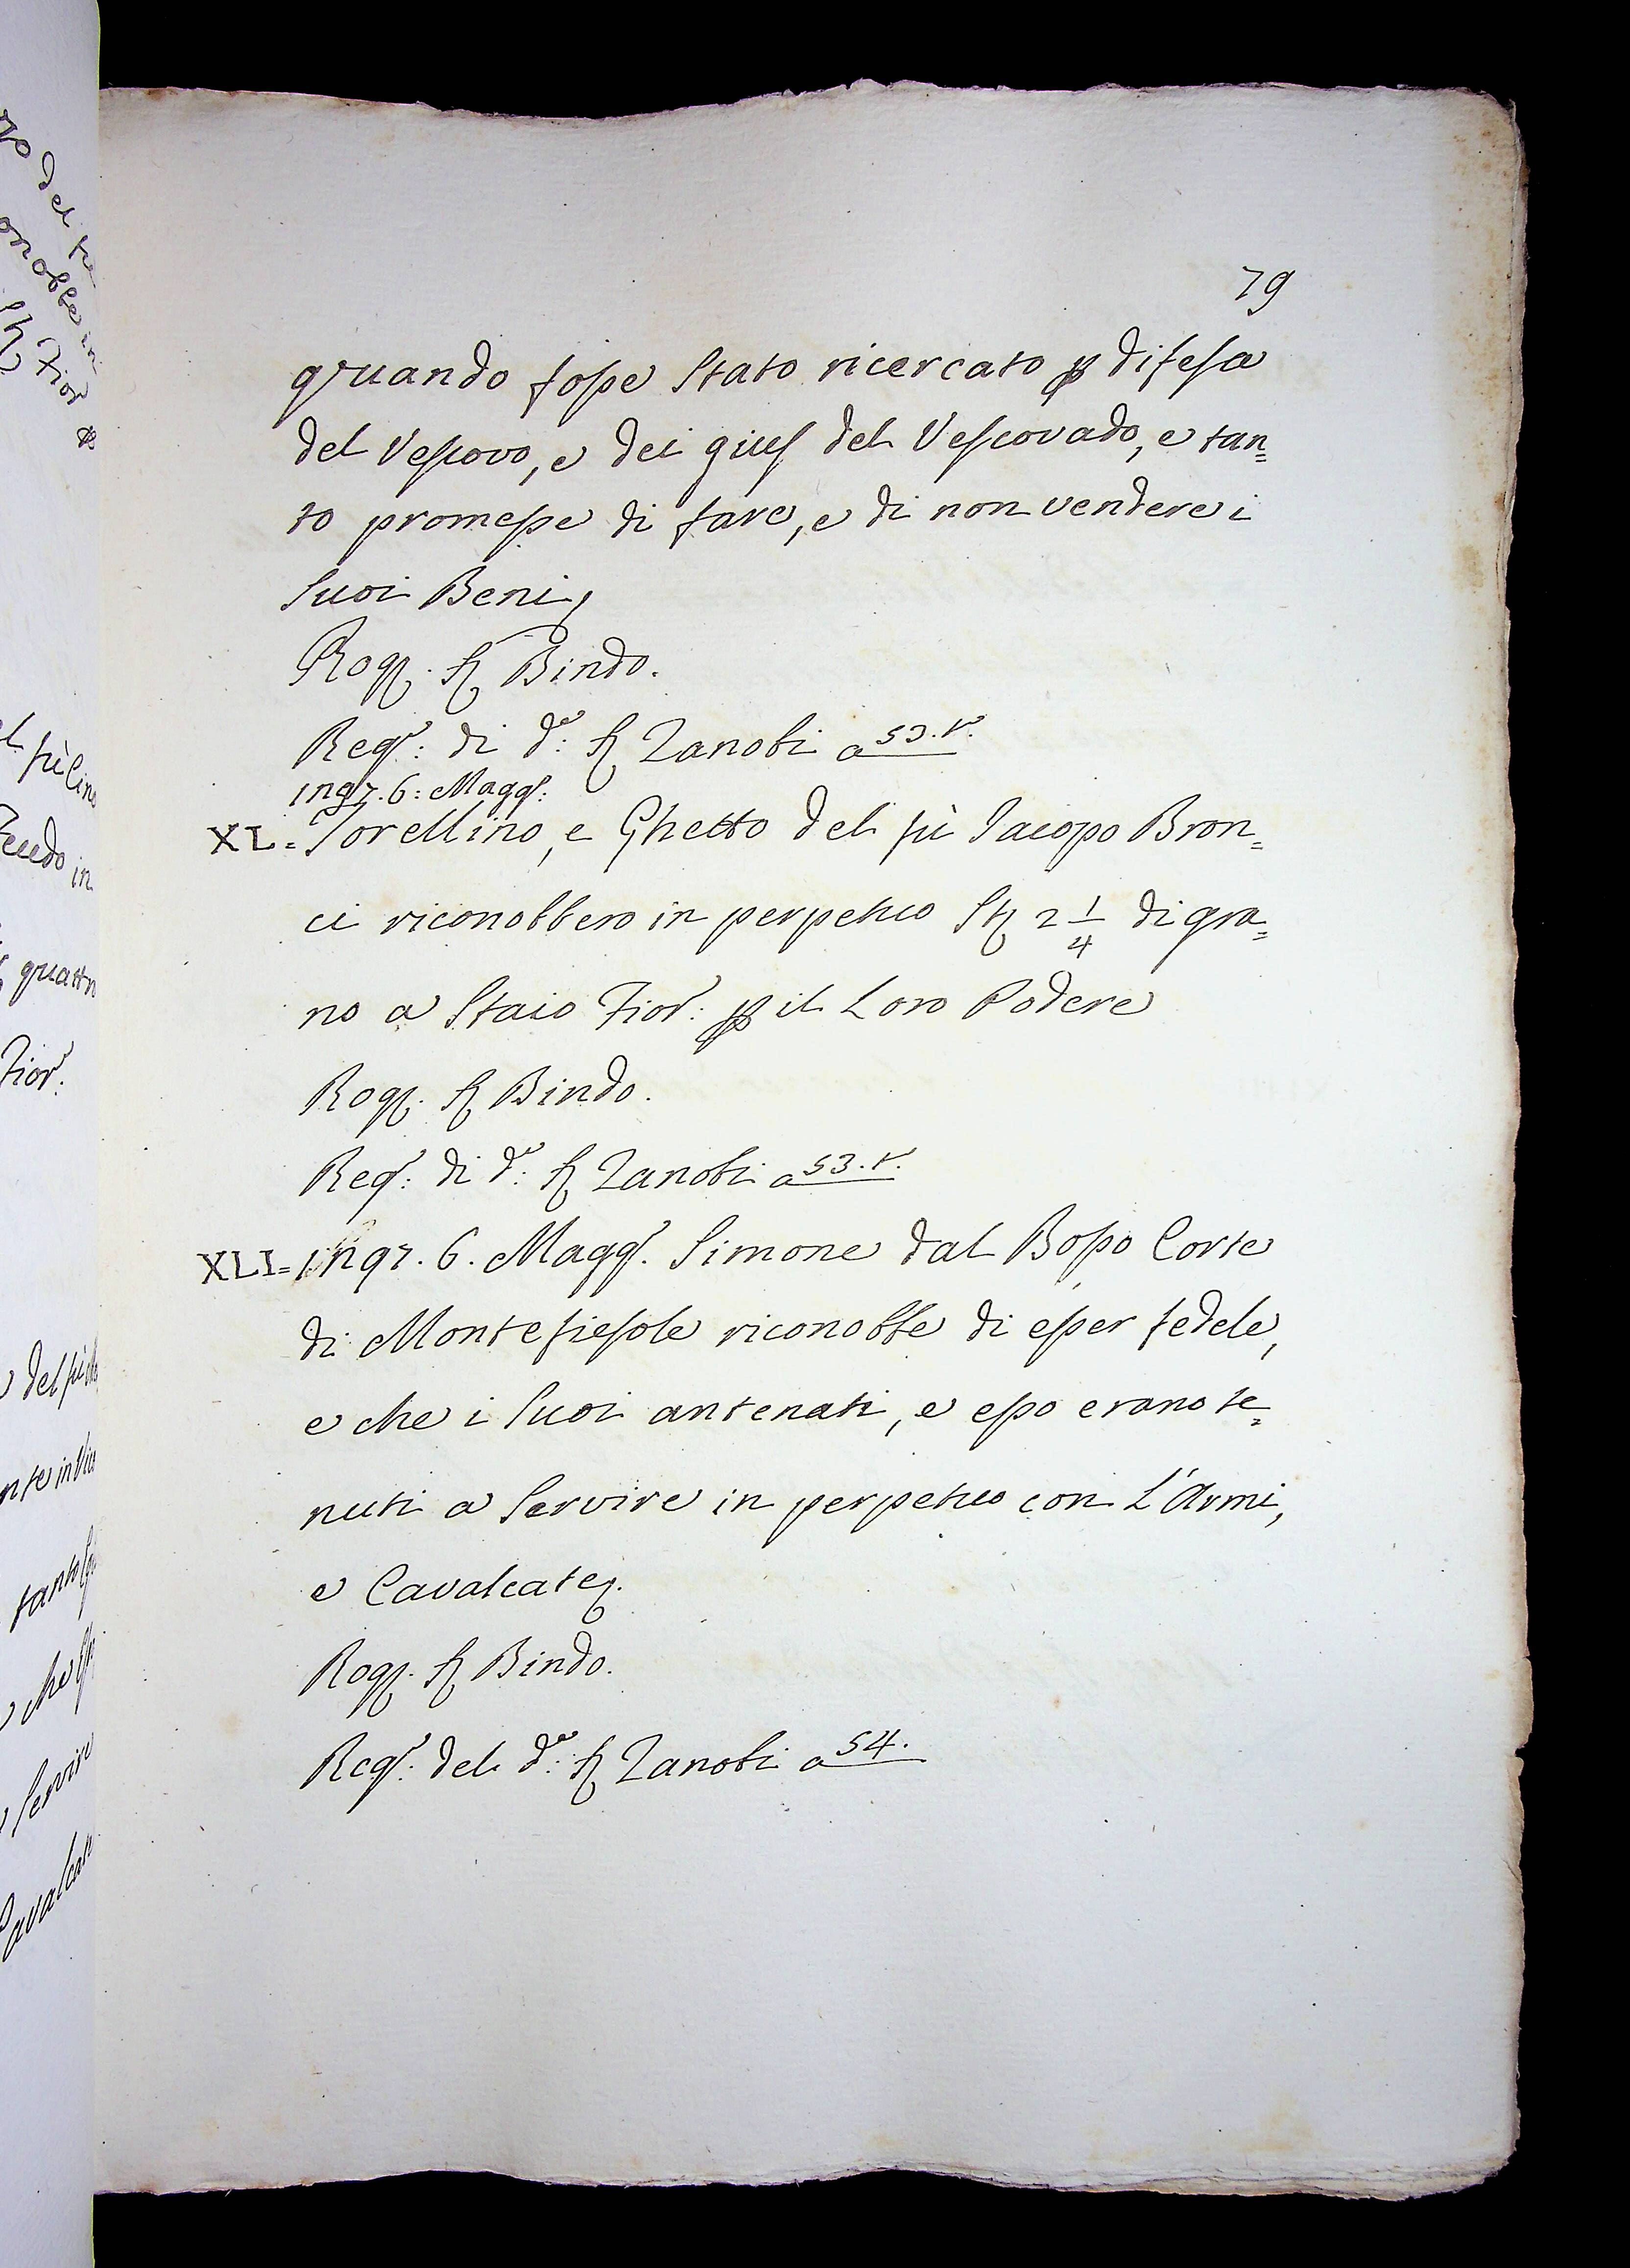 79
quando fosse stato ricercato p difesa
del Vescovo, e dei gius del Vescovado, e tan=
to promesse di fare, e di non vendere i
suoi Beni,
Rog. S. Bindo.
Reg.: di d.o: S. Zanobi a 53.t.
XL= Torellino, e Ghetto del fù Iacopo Bron=
ci riconobbero in perpetuo St. 2 1/4 di gra=
no a Staio Fior: p il loro Podere
Rog. S. Bindo.
Reg.: di d.o: S. Zanobi a 53.t.
XLI= Magg. Simone dal Bosso Corte
di Montefiesole riconobbe di esser fedele,
e che i suoi antenati, e esso erano te=
nuti a servire in perpetuo con l'Armi,
e Cavalcate.
Rog. S. Bindo.
Reg.: del d.o: S. Zanobi a 54.